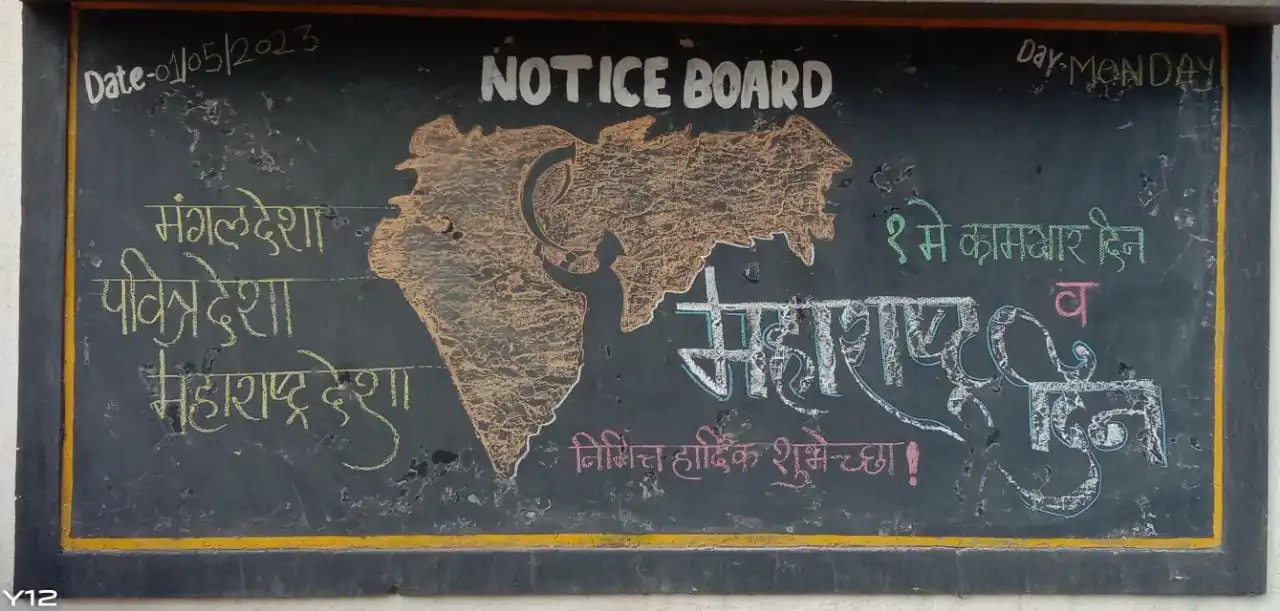 Date-01/05/2023
NOTICE BOARD
Day-MONDAY
मंगलदेशा
पवित्र देशा
महाराष्ट्र देशा
१ मे कामगार दिन
व
महाराष्ट्र दिन
निमित्त हार्दिक शुभेच्छा!
Y12